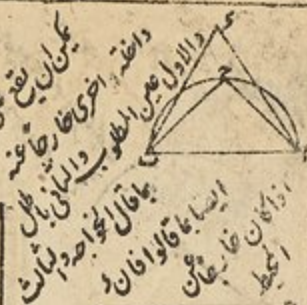 يمكن ان يقع
داخله اخرى خارجا عنه
والاول عين المطلوب والثانى باطل
بما قال الخواجه والثالث
ايضا بما قالوا فان
اذا كان خارجا عن
المحيط
ء
ح